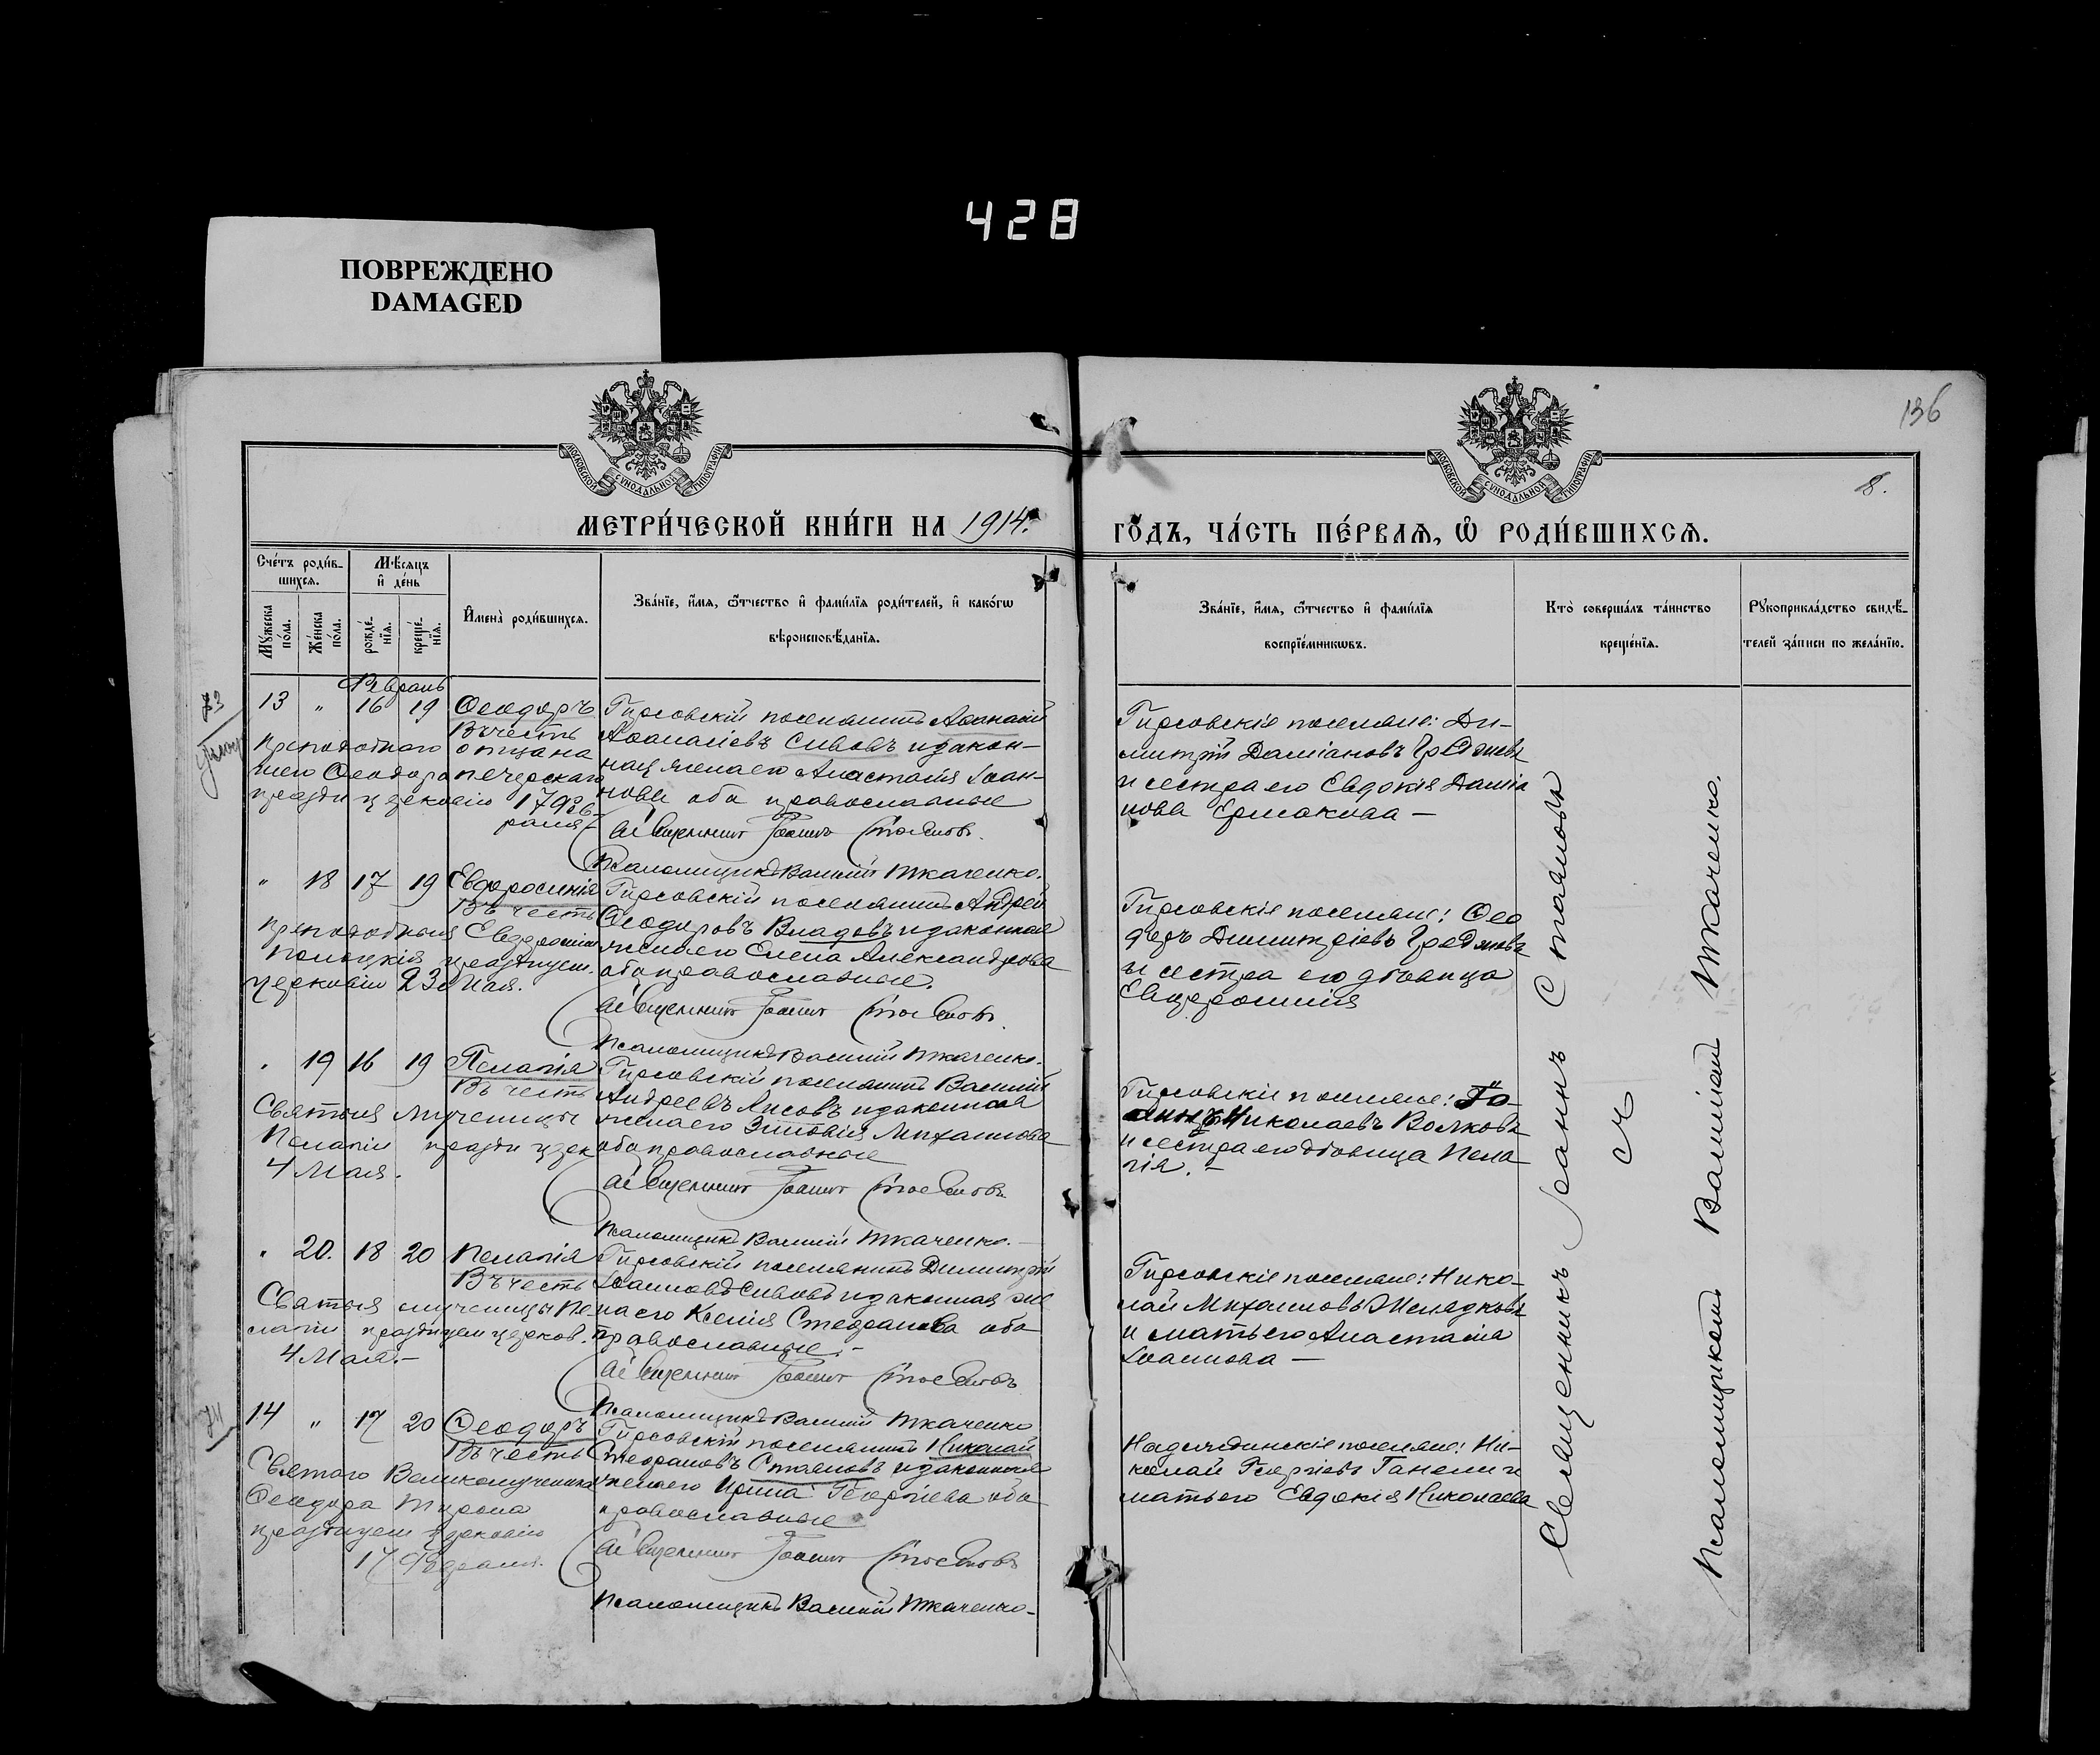 428
ПОВРЕЖДЕНО
DAMAGED
136
8.
МОСКОВСКОЙ СѴНОДАЛЬНОЙ ТИПОГРАФІИ
МОСКОВСКОЙ СѴНОДАЛЬНОЙ ТИПОГРАФІИ
МЕТРИ́ЧЕСКОЙ КНИ́ГИ НА 1914.
ГО́ДЪ, ЧА́СТЬ ПЕ́РВАѦ, Ѡ҆ РОДИ́ВШИХСѦ.
Сче́тъ роди́в-
шихсѧ.
Мꙋ́жеска
по́ла.
Же́нска
по́ла.
Мѣ́сѧцъ
и҆ де́нь
рожде́-
нїѧ.
креще́-
нїѧ.
И҆мена̀ роди́вшихсѧ.
Зва́нїе, и҆́мѧ, ѻ҆́тчество и҆ фами́лїѧ роди́телей, и҆ како́гѡ
вѣроисповѣ́данїѧ.
Зва́нїе, и҆́мѧ, ѻ҆́тчество и҆ фами́лїѧ
воспрїе́мникѡвъ.
Кто̀ соверша́лъ та́инство
креще́нїѧ.
Рꙋкоприкла́дство свидѣ́-
телей за́писи по жела́нїю.
Февраль
13 " 16 19 Ѳеодоръ
Въ честь
преподобнаго отца на
шего Ѳеодора печерскаго
праздн церковію 17 Фев
раля
Гирсовскій поселянинъ Аѳанасій
Аѳанасіевъ Сивовъ и закон-
ная жена его Анастасія Іоан-
нова оба православные
Священникъ Іоаннъ Стояновъ.
Псаломщикъ Василій Ткаченко.
Гирсовскіе поселяне: Ди-
митрій Даміановъ
и сестра его Евдокія Даміа
нова Ермакова —
" 18 17 19 Евфросинія
Въ честь
преподобныя Евфросиніи
Полоцкія празднуем.
церковію 23 Мая.
Гирсовскій поселянинъ Андрей
Ѳеодоровъ Владовъ и законная
жена его Елена Александрова
оба православные.
Священникъ Іоаннъ Стояновъ.
Псаломщикъ Василій Ткаченко.
Гирсовскіе поселяне: Ѳео
доръ Димитріевъ
и сестра его дѣвица
Евфросинія
" 19 16 19 Пелагія
Въ честь
Святыя мученицы
Пелагіи праздн церк
4 Мая.
Гирсовскій поселянинъ Василій
Андреевъ Лисовъ и законная
жена его Зиновія Михаилова
оба православные
Священникъ Іоаннъ Стояновъ.
Псаломщикъ Василій Ткаченко.
Гирсовскіе поселяне: Іо-
аннъ Николаевъ Волковъ
и сестра его дѣвица Пела
гія. —
" 20. 18 20 Пелагія
Въ честь
Святыя мученицы Пе
лагіи празднуем церков.
4 Мая. —
Гирсовскій поселянинъ Димитрій
Іоанновъ Сивовъ и законная же
на его Ксенія Стефанова оба
православные. —
Священникъ Іоаннъ Стояновъ
Псаломщикъ Василій Ткаченко
Гирсовскіе поселяне: Нико-
лай Михаиловъ
и мать его Анастасія
Іоаннова —
14 " 17 20 Ѳеодоръ
Въ честь
Святаго Великомученика
Ѳеодора Тирона
празднуем церковію
17 Февраля.
Гирсовскій поселянинъ Николай
Стефановъ Стояновъ и законная
жена его Ирина Георгіева оба
православные
Священникъ Іоаннъ Стояновъ
Псаломщикъ Василій Ткаченко.
поселяне: Ни-
колай Георгіевъ и
мать его Евдокія Николаева
Священникъ Іоаннъ Стояновъ
съ
Псаломщикомъ Василіемъ Ткаченко.